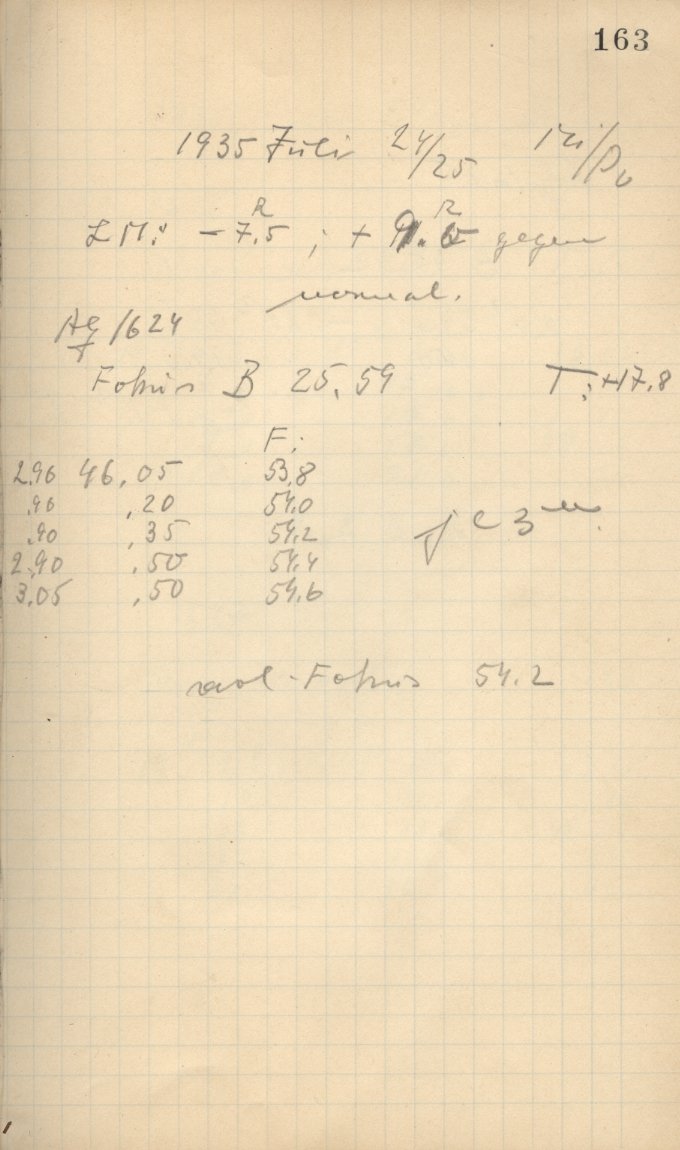 163
1935 Juli 24/25
LM: - 7.5 ; + gegen
normal.
Ag 1624
Fokus B 25.59 T: +17.8
F:
2.90 46,05 53.8
.90 ,20 54.0
.90 ,35 54.2
2.90 ,50 54.4
3.05 ,50 54.6
je 3 m.
Fokus 54.2